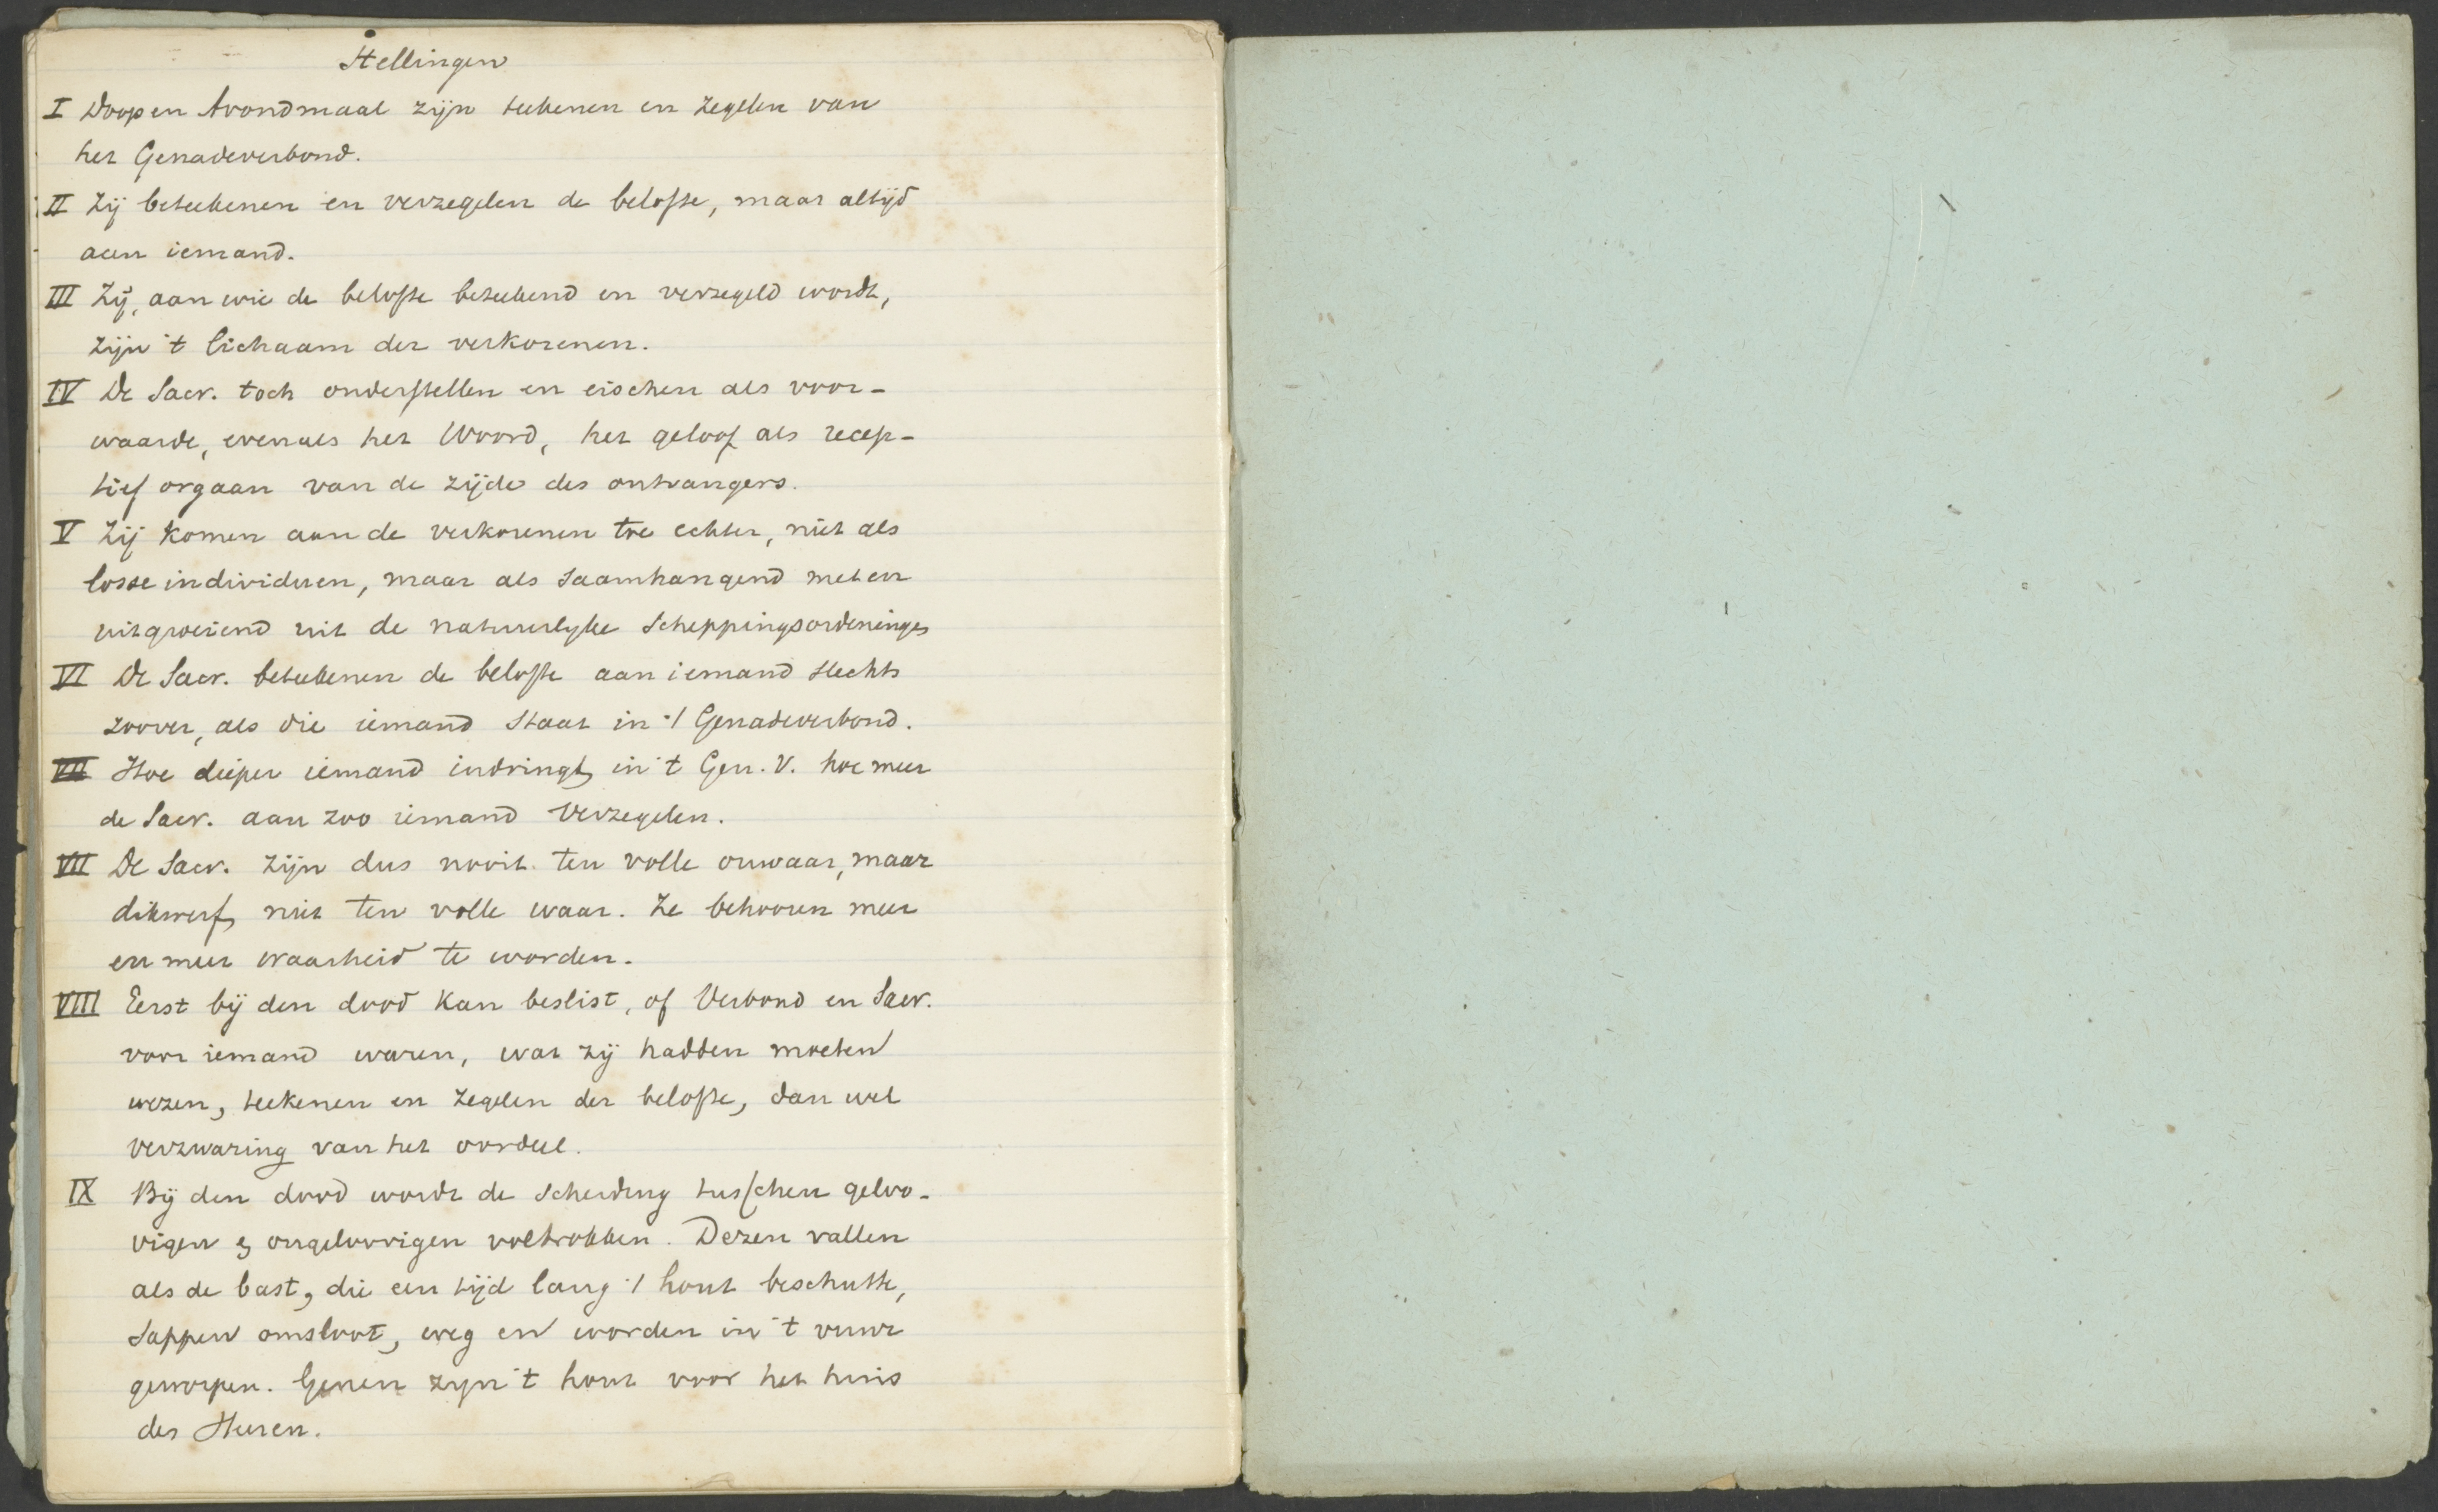 Stellingen
I Doop en Avondmaal zijn teekenen en zegelen van
het Genadeverbond.
II Zij beteekenen en verzegelen de belofte, maar altijd
aan iemand.
III Zij, aan wie de belofte beteekend en verzegeld wordt,
zijn 't lichaam der verkorenen.
IV De Sacr. toch onderstellen en eischen als voor-
waarde, evenals het Woord, het geloof als recep-
tief orgaan van de zijde des ontvangers.
V Zij komen aan de verkorenen toe echter, niet als
losse individuen, maar als saamhangend met en
uitgroeiend uit de natuurlyke Scheppingsordeninges
VI De Sacr. beteekenen de belofte aan iemand slechts
zoover, als die iemand staat in 't Genadeverbond.
VII Hoe dieper iemand indringt in 't Gen. V. hoe meer
de Sacr. aan zoo iemand verzegelen.
VII De Sacr. zijn dus nooit ten volle onwaar, maar
dikwerf niet ten volle waar. Ze behooren meer
en meer waarheid te worden.
VIII Eerst bij den dood kan beslist, of Verbond en Sacr.
voor iemand waren, wat zij hadden moeten
wezen, teekenen en zegelen der belofte, dan wel
verzwaring van het oordeel.
IX Bij den dood wordt de scheiding tusschen geloo-
vigen & ongeloovigen voltrokken. Dezen vallen
als de bast, die een tijd lang 't hout beschutte,
sappen omsloot, weg en worden in 't vuur
geworpen. Genen zyn 't hout voor het huis
des Heeren.